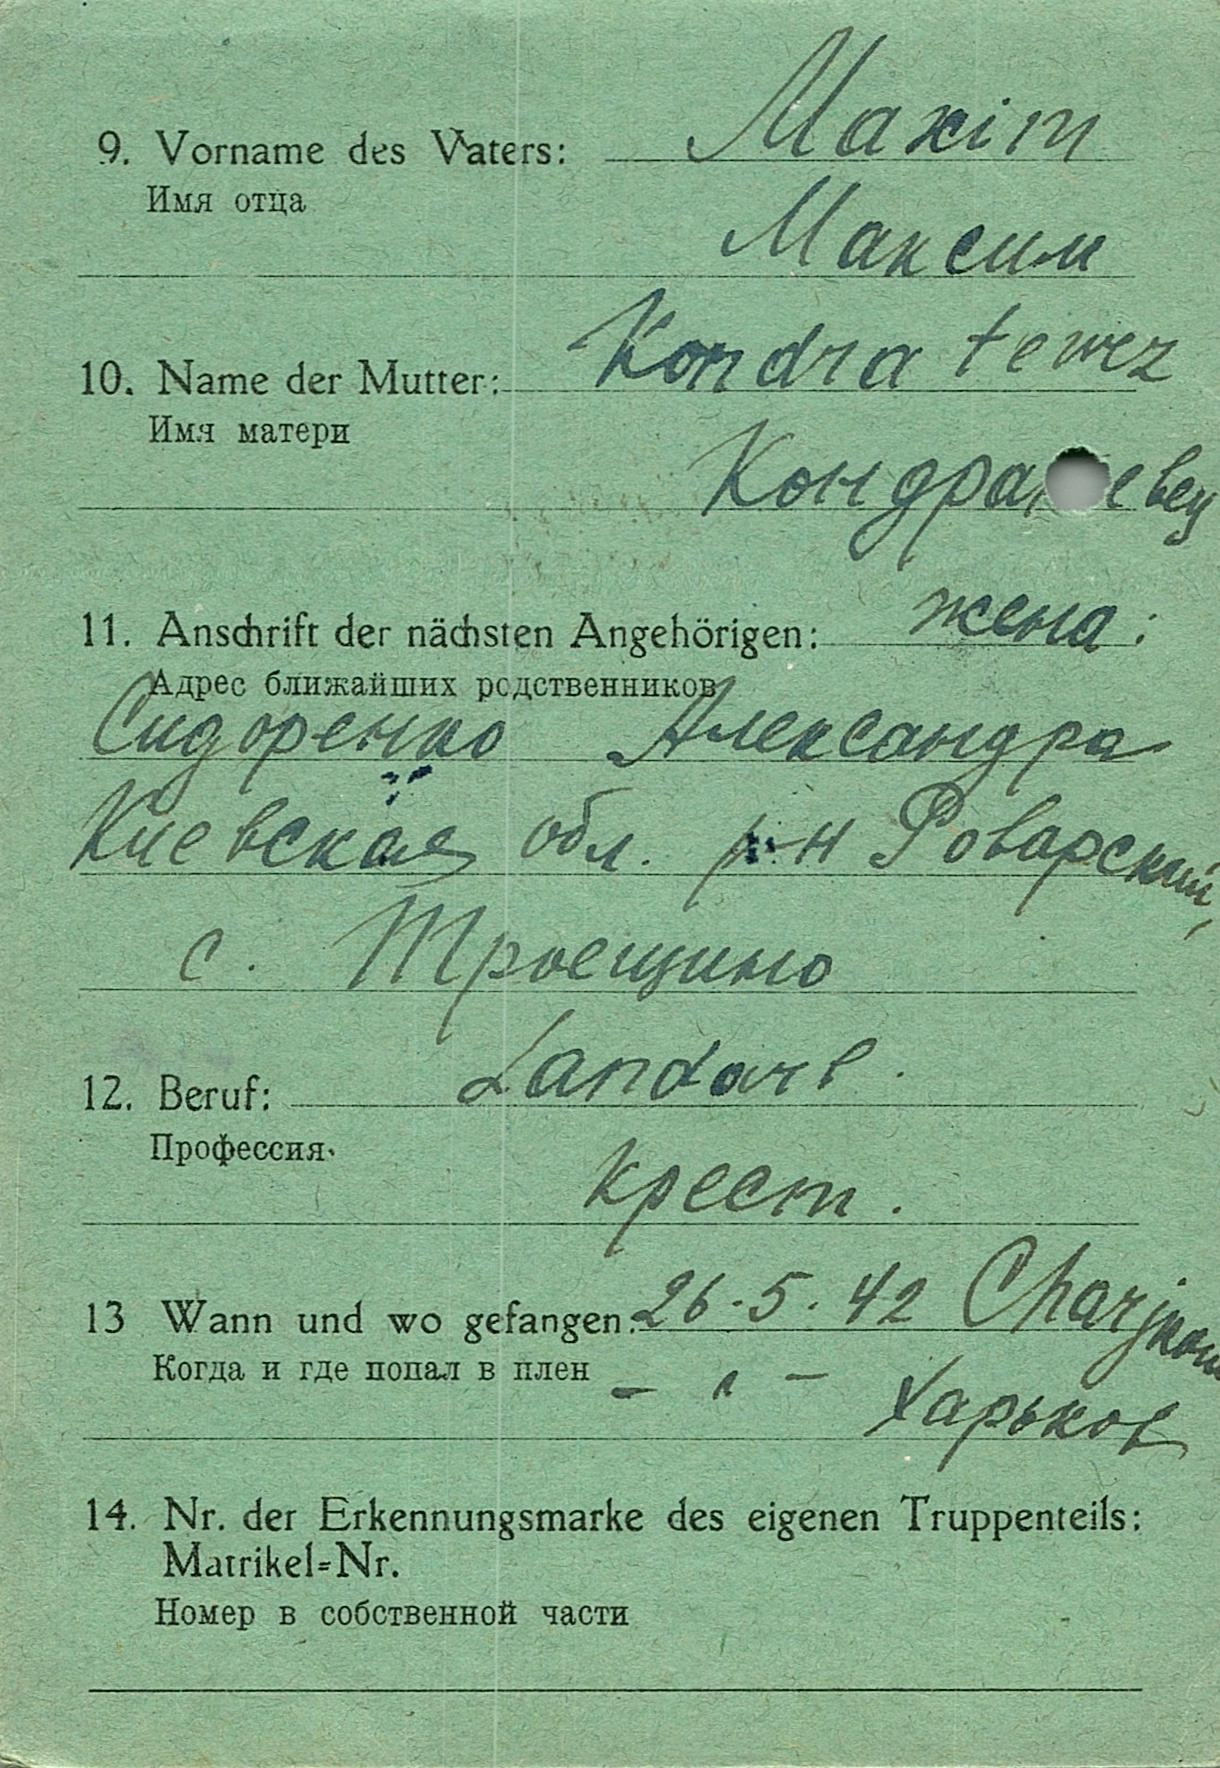 9. Vorname des Vaters: Maxim
Имя отца
Максим
Kondratewez
10. Name der Mutter:
Имя матери
Кондра евец
11. Anschrift der nächsten Angehörigen: жена:
Адрес ближайших родственников
Сидоренко Александра
Киевская обл. р-н Роварский,
с. Троещино
12. Beruf: Landarb.
Профессия
крест.
13 Wann und wo gefangen: 26.5.42 Charjkow
Когда и где попал в плен
– " – Харьков
14. Nr. der Erkennungsmarke des eigenen Truppenteils:
Matrikel=Nr.
Номер в собственной части